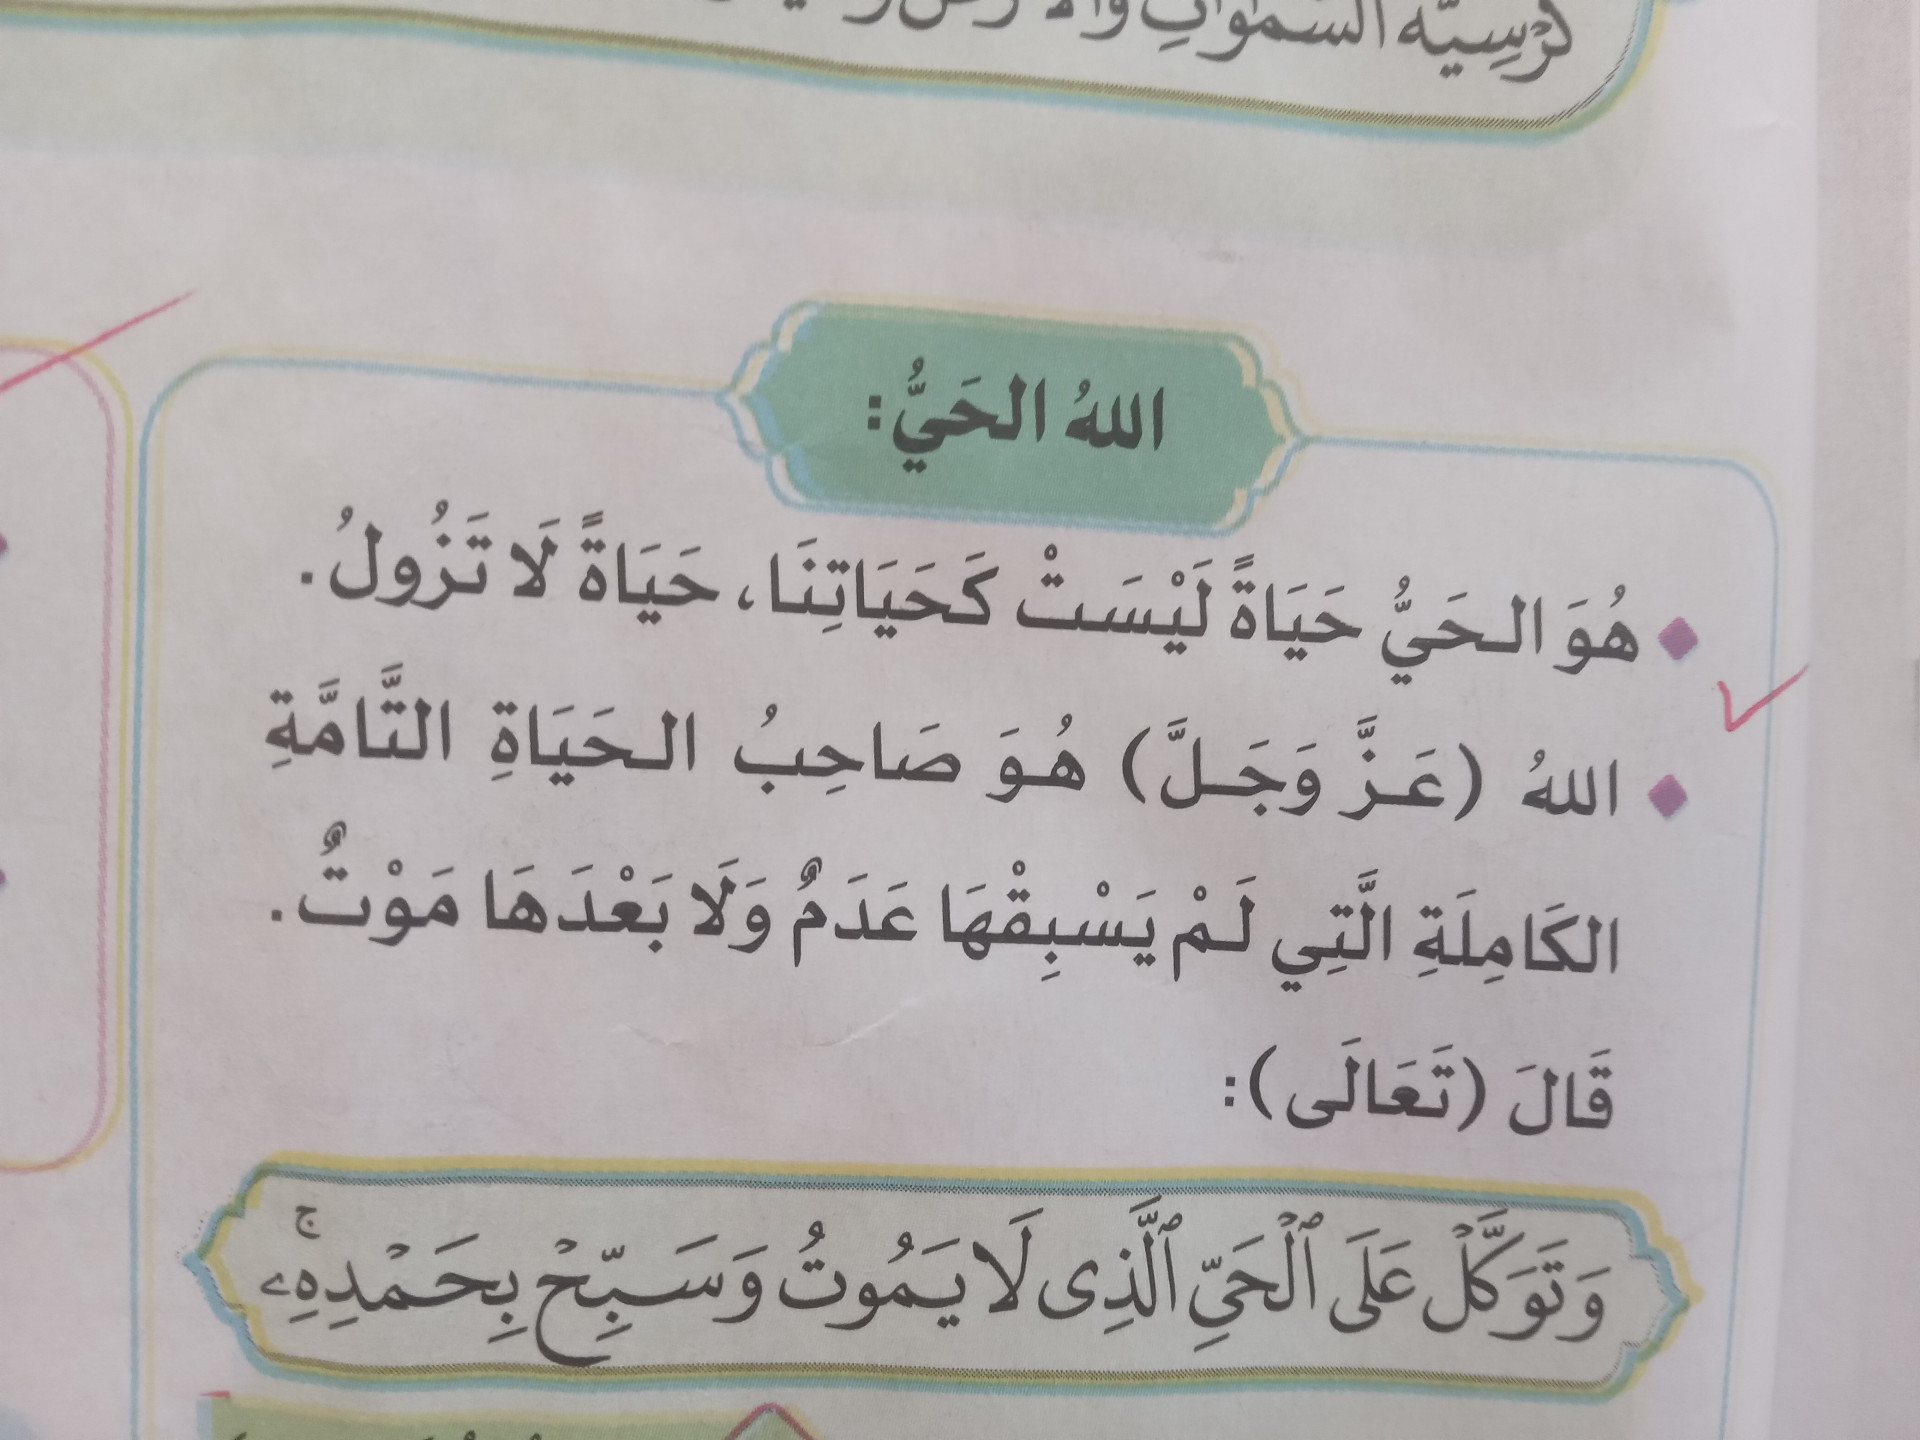 كُرْسِيُّهُ السَّمَوَاتِ وَالْأَرْضَ
اللهُ الحَيُّ:
هُوَ الحَيُّ حَيَاةً لَيْسَتْ كَحَيَاتِنَا، حَيَاةً لَا تَزُولُ.
اللهُ (عَزَّ وَجَلَّ) هُوَ صَاحِبُ الحَيَاةِ التَّامَّةِ
الكَامِلَةِ الَّتِي لَمْ يَسْبِقْهَا عَدَمٌ وَلَا بَعْدَهَا مَوْتٌ.
قَالَ (تَعَالَى):
وَتَوَكَّلْ عَلَى ٱلْحَيِّ ٱلَّذِى لَا يَمُوتُ وَسَبِّحْ بِحَمْدِهِۦۚ